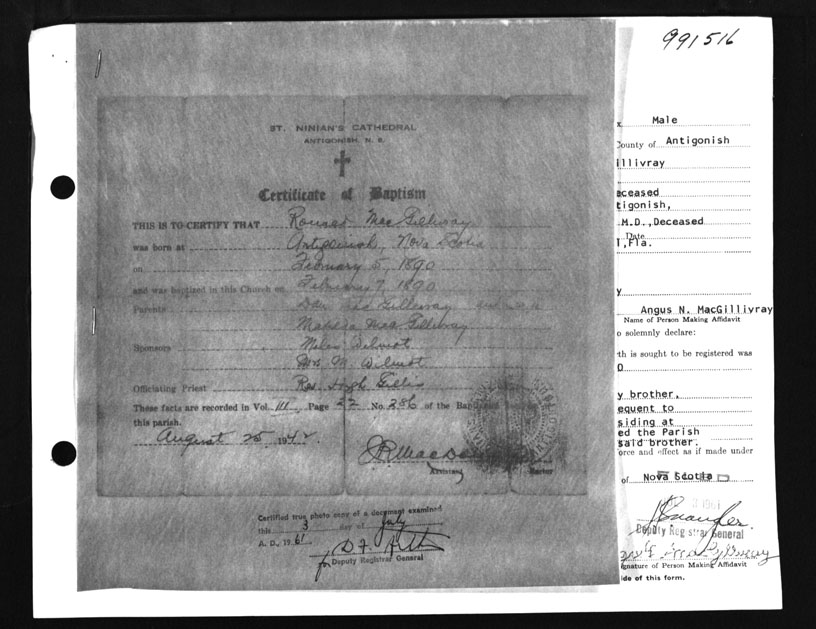 991516
ST. NINIAN'S CATHEDRAL
ANTIGONISH, N. S.
Certificate of Baptism
THIS IS TO CERTIFY THAT Ronald MacGillivray
was born at Antigonish, Nova Scotia
on February 5, 1890
and was baptized in this Church on February 7, 1890
Parents Dan MacGillivray
MacGillivray
Sponsors Wilmot
Mrs M. Wilmot
Officiating Priest Rev. Hugh Gillis
These facts are recorded in Vol. III Page 22 No. 286 of the
this parish.
August 25 1942
Assistant Rector
Certified true photo copy of a document examined
this 3 day of July
A. D. 1961
for Deputy Registrar General
x Male
County of Antigonish
illivray
eceased
tigonish,
M.D.,Deceased
Date
l,Fla.
y
Angus N. MacGillivray
Name of Person Making Affidavit
o solemnly declare:
th is sought to be registered was
0
y brother,
equent to
siding at
ed the Parish
said brother.
orce and effect as if made under
of Nova Scotia
Deputy Registrar General
ignature of Person Making Affidavit
ide of this form.